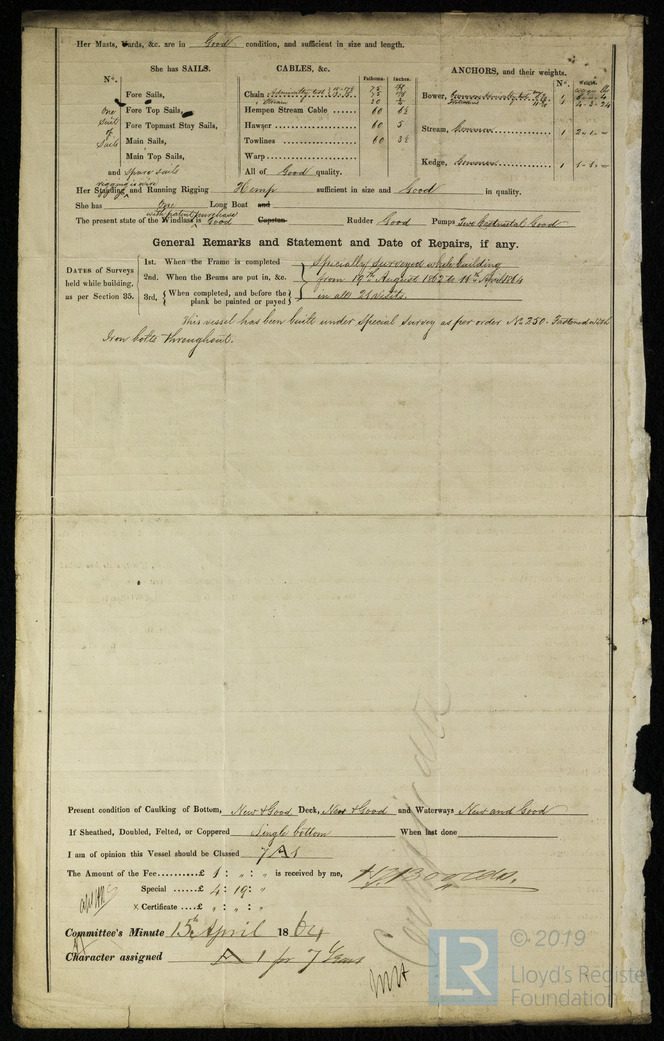 Her Masts, Yards, &c. are in Good condition, and sufficient in size and length.
She has SAILS.
CABLES, &c.
Fathoms.
Inches.
ANCHORS, and their weights.
No.
Fore Sails,
Fore Top Sails,
Fore Topmast Stay Sails,
Main Sails,
Main Top Sails,
and Spare sails
one
Suit
of
Sails
Chain
75
75
Stream
Hempen Stream Cable 60 6½
Hawser 60 5
Towlines 60 3½
Warp
All of Good quality.
No.
Bower,
4-3-24
Stream, Common 1 2-1-
Kedge, Common 1 1-1-
rigging is wire
Her Standing and Running Rigging Hemp sufficient in size and Good in quality.
She has One Long Boat and
with patent purchase
The present state of the Windlass is Good Capstan Rudder Good Pumps Two Good
General Remarks and Statement and Date of Repairs, if any.
DATES of Surveys
held while building,
as per Section 35.
1st. When the Frame is completed
2nd. When the Beams are put in, &c.
3rd, { When completed, and before the
plank be painted or payed }
Specially Surveyed while building
from 19th August 1862 to 11th April 1864
in all 21 visits.
This vessel has been built under Special Survey as per order No 250. Fastened with
Iron bolts throughout.
Present condition of Caulking of Bottom, New & Good Deck, New & Good and Waterways New and Good
If Sheathed, Doubled, Felted, or Coppered Single bottom When last done
I am of opinion this Vessel should be Classed 7 A 1
The Amount of the Fee..........£ 1 : " : " is received by me,
Special ......£ 4 : 19 : "
× Certificate ....£ " : " : "
Committee's Minute 15th April 1864
Character assigned A 1 for 7 Years
LR
© 2019
Lloyd's Register
Foundation